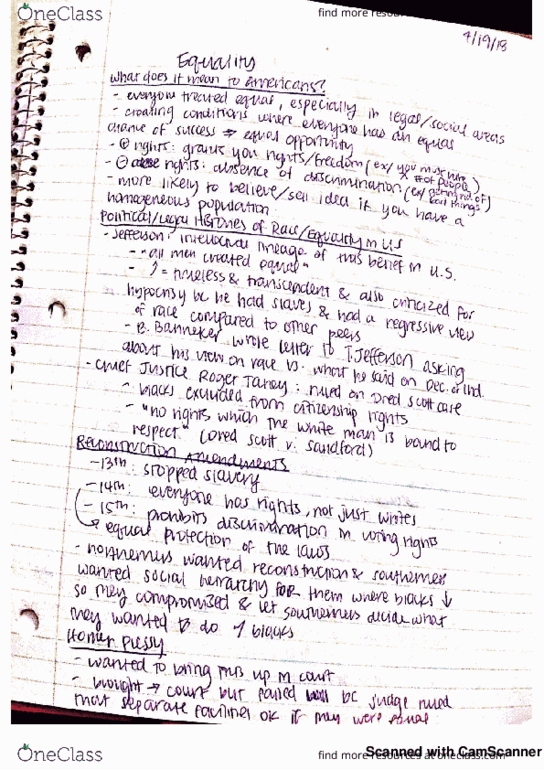 OneClass
find more resources
4/19/18
Equality
What does it mean to Americans?
- everyone treated equal, especially in legal/social areas
- creating conditions where everyone has an equal
chance of success → equal opportunity
- ⊕ rights: grants you rights/freedom (ex/ you must hire
X # of people)
- ⊖ rights: absence of discrimination (ex/ getting rid of
bad things)
- more likely to believe/sell idea if you have a
homogeneous population
Political/Legal Histories of Race/Equality in US
- Jefferson: intellectual lineage of this belief in U.S.
- "all men created equal"
- = timeless & transcendent & also criticized for
hypocrisy bc he had slaves & had a regressive view
of race compared to other peers
- B. Banneker wrote letter to T. Jefferson asking
about his view on race vs. what he said on Dec. of Ind.
- Chief Justice Roger Taney: ruled on Dred Scott case
- blacks excluded from citizenship rights
- "no rights which the white man is bound to
respect" (Dred Scott v. Sandford)
Reconstruction Amendments
- 13th: stopped slavery
- 14th: everyone has rights, not just whites
- 15th: prohibits discrimination in voting rights
→ equal protection of the laws
- northerners wanted reconstruction & southerners
wanted social heirarchy for them where blacks ↓
so they compromised & let southerners decide what
they wanted to do blacks
Homer Plessy
- wanted to bring this up in court
- brought → court but failed bc judge ruled
that separate facilities ok if they were equal
OneClass
find more resources at oneclass.com
Scanned with CamScanner